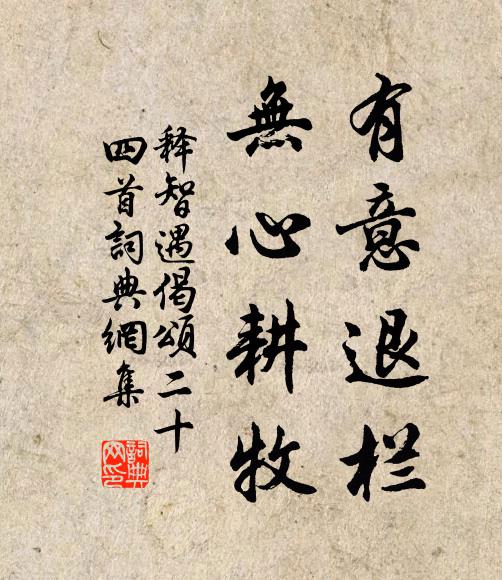 有意退栏
無心耕牧
释智遇偈頌二十
四首詞典網集
詞典網印